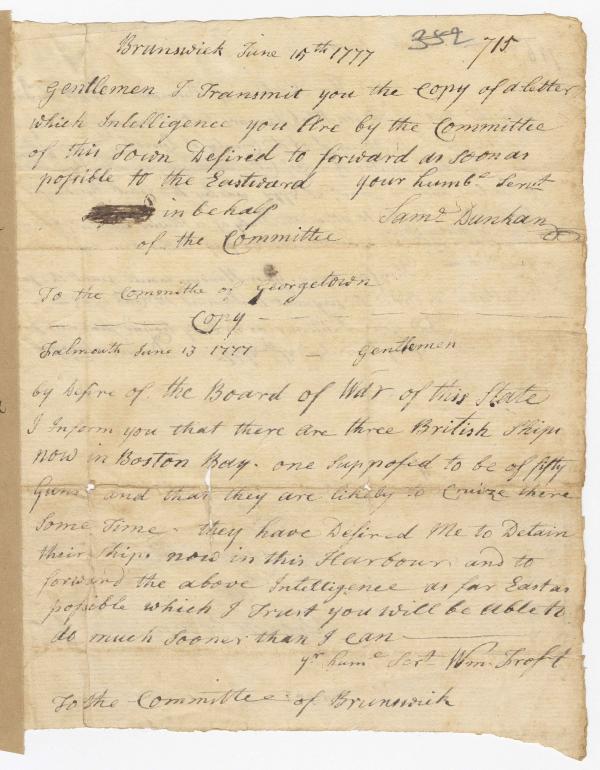 Brunswick June 15th 1777 352 715
Gentlemen I Transmit you the Copy of a letter
which Intelligence you Are by the Committee
of this Town Desired to forward as soon as
possible to the Eastward your humbe Servt
in behalf Saml Dunhan
of the Committee
To the Committe of Georgetown
Copy
Falmouth June 13 1777 - Gentlemen
by Desire of the Board of War of this State
I Inform you that there are three British Ships
now in Boston Bay. one supposed to be of fifty
Guns and that they are likely to Cruize there
Some Time. they have Desired Me to Detain
their ships now in this Harbour and to
forward the above Intelligence as far East as
possible which I Trust you will be able to
do much sooner than I can
yr hume Sert Wm Frost
To the Committee of Brunswick